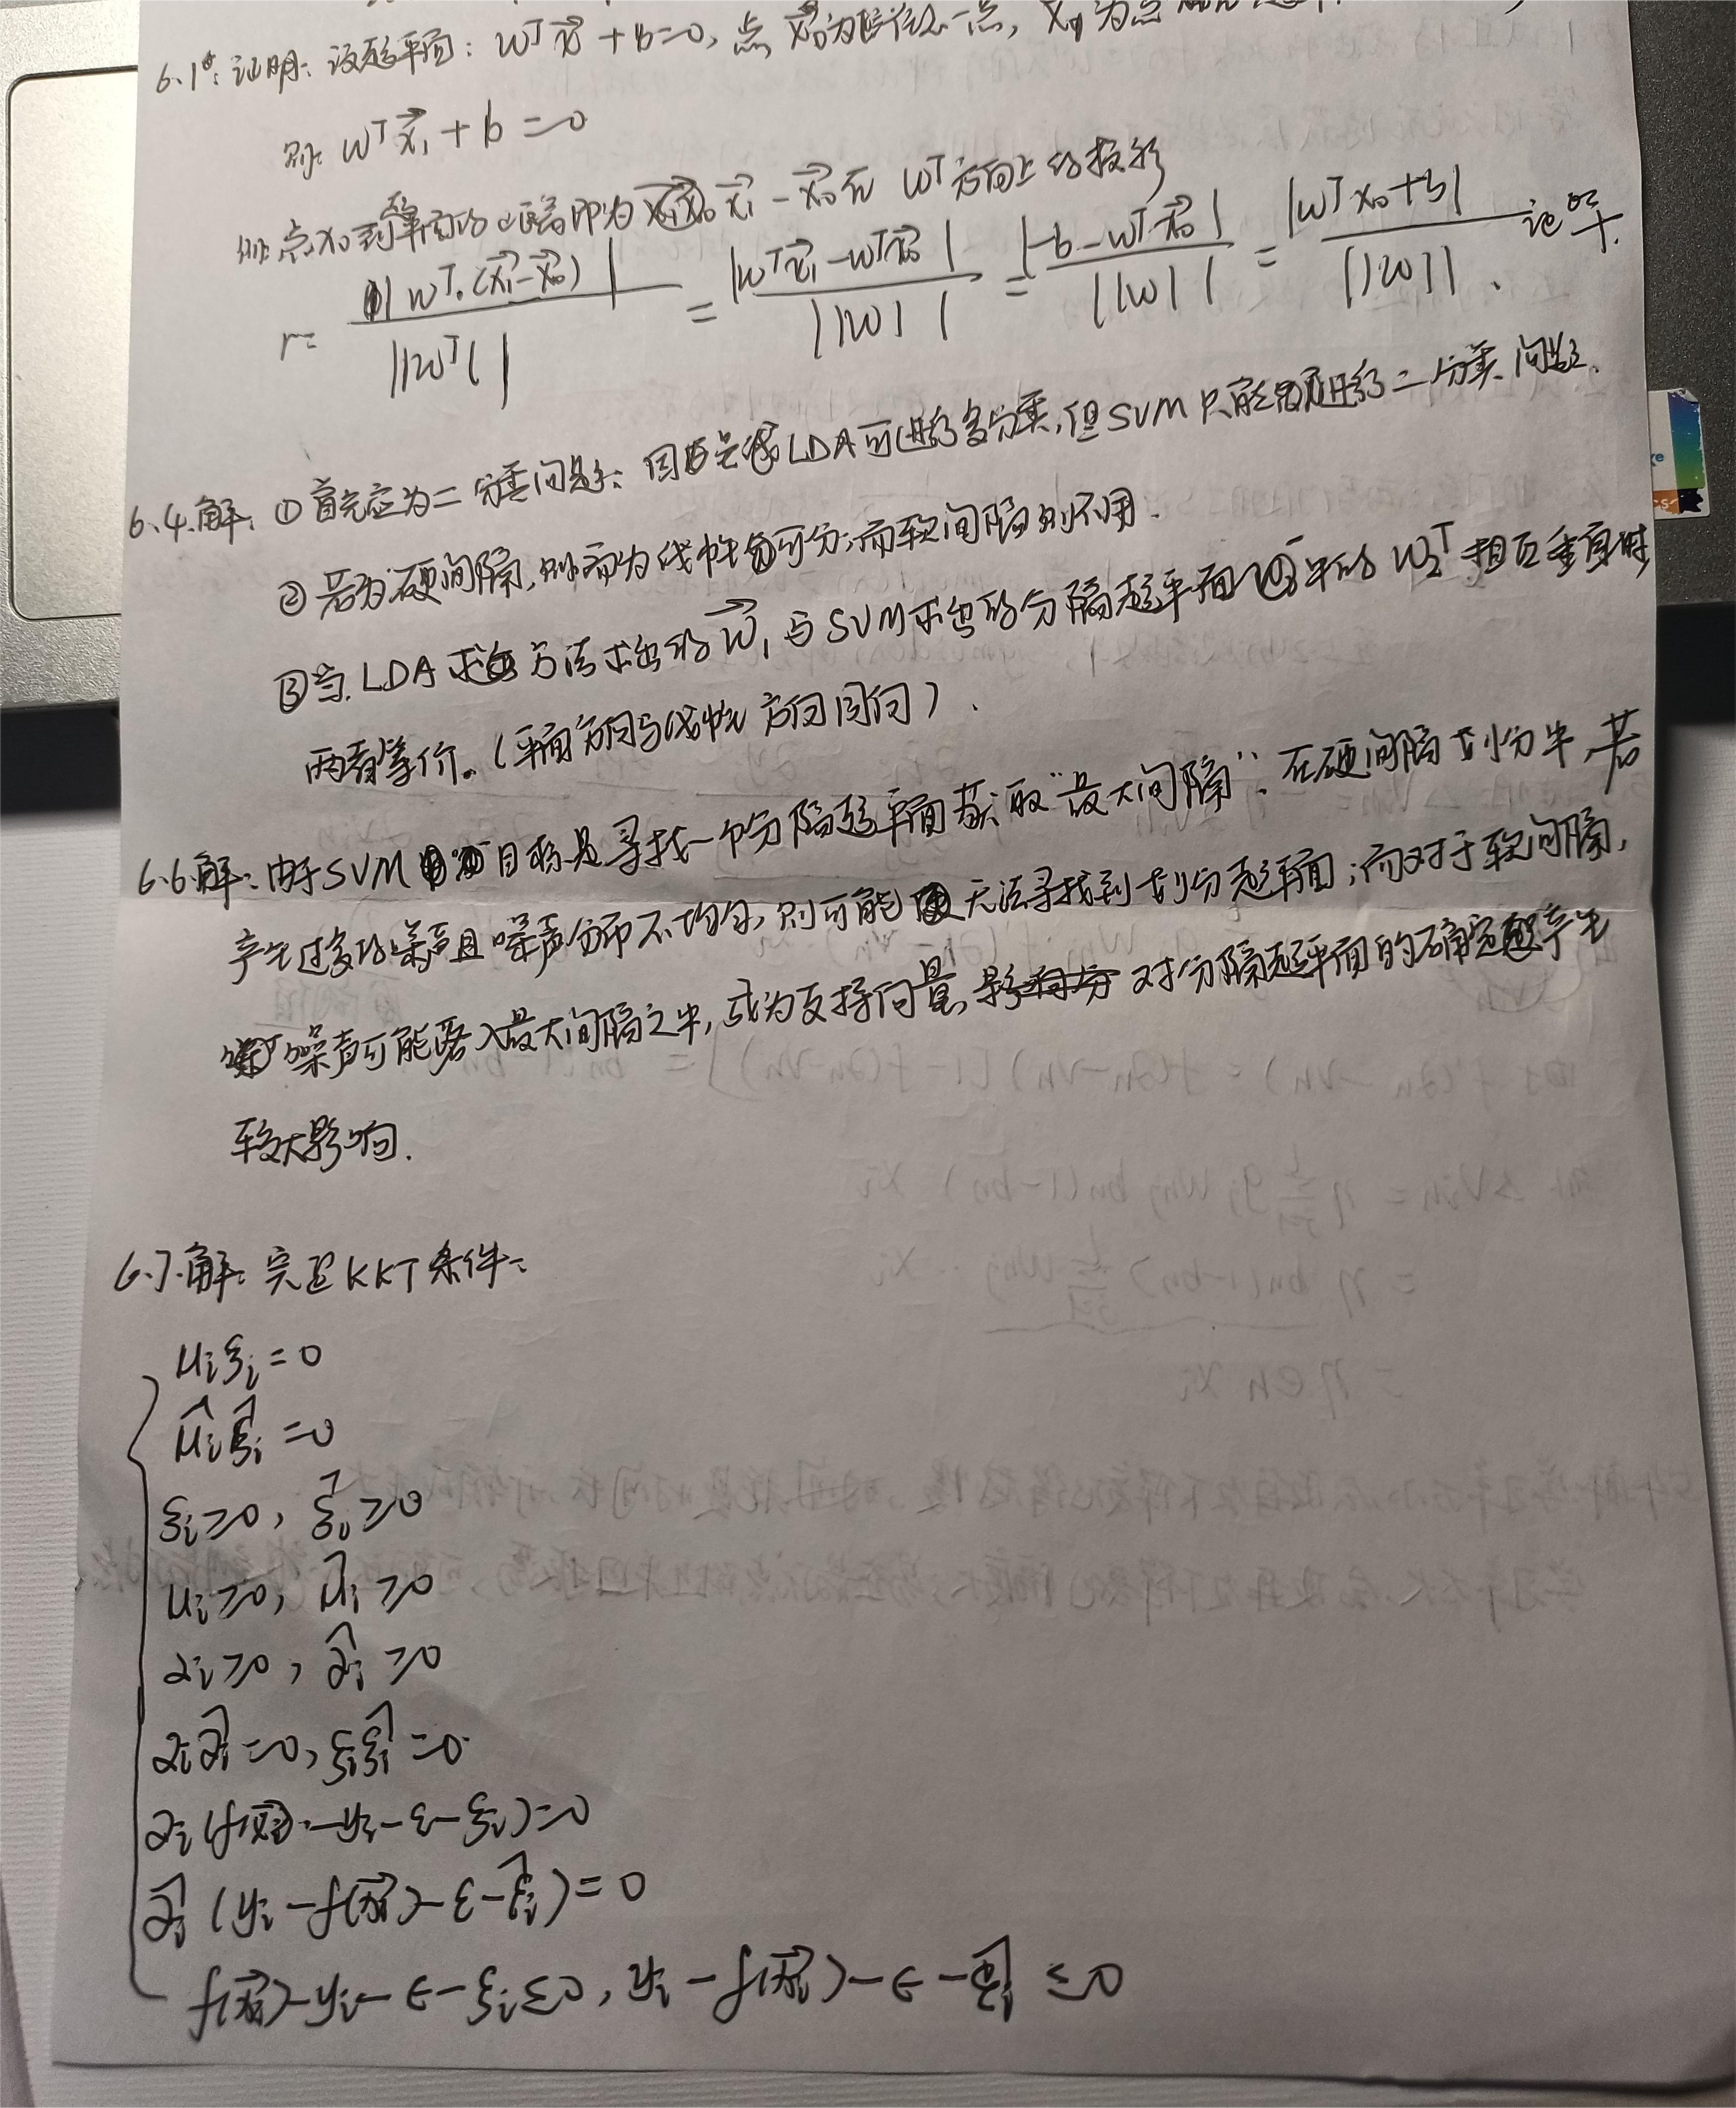 6.1: 证明: 设超平面: wᵀx⃗ + b = 0, 点 x⃗₀ 为任意一点, x⃗₁ 为
则: wᵀx⃗₁ + b = 0
则点x₀到平面的距离即为 x⃗₁ - x⃗₀ 在 wᵀ 方向上的投影
r = |wᵀ·(x⃗₁-x⃗₀)| / ||wᵀ|| = |wᵀx⃗₁ - wᵀx⃗₀| / ||w|| = |-b - wᵀx⃗₀| / ||w|| = |wᵀx₀ + b| / ||w||. 证毕.
6.4.解: ① 首先应为二分类问题: 因为 LDA可进行多分类, 但SVM只能进行二分类问题.
② 若为硬间隔, 则需为线性可分; 而软间隔则不用.
③ 当 LDA 方法求出的 w⃗₁ 与 SVM求出的分隔超平面中的 w₂ᵀ 相互垂直时
两者等价。(平面方向与 方向同向).
6.6.解: 由于SVM 目标是寻找一个分隔超平面获取"最大间隔". 在硬间隔划分中, 若
产生过多的噪声且噪声分布不均匀, 则可能 无法寻找到划分超平面; 而对于软间隔,
噪声可能落入最大间隔之中, 成为支持向量, 对分隔超平面的确定产生
较大影响.
6.7.解: 完整KKT条件:
μᵢξᵢ = 0
μ̂ᵢξ̂ᵢ = 0
ξᵢ ≥ 0, ξ̂ᵢ ≥ 0
μᵢ ≥ 0, μ̂ᵢ ≥ 0
αᵢ ≥ 0, α̂ᵢ ≥ 0
αᵢα̂ᵢ = 0, ξᵢξ̂ᵢ = 0
αᵢ(f(x⃗ᵢ) - yᵢ - ε - ξᵢ) = 0
α̂ᵢ(yᵢ - f(x⃗ᵢ) - ε - ξ̂ᵢ) = 0
f(x⃗ᵢ) - yᵢ - ε - ξᵢ ≤ 0, yᵢ - f(x⃗ᵢ) - ε - ξ̂ᵢ ≤ 0